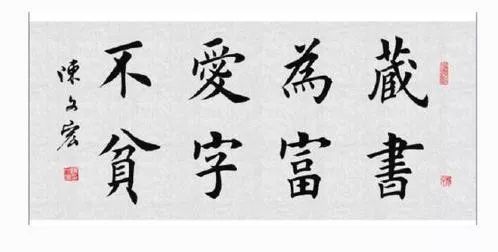 藏書
為富
愛字
不貧
陳文宏